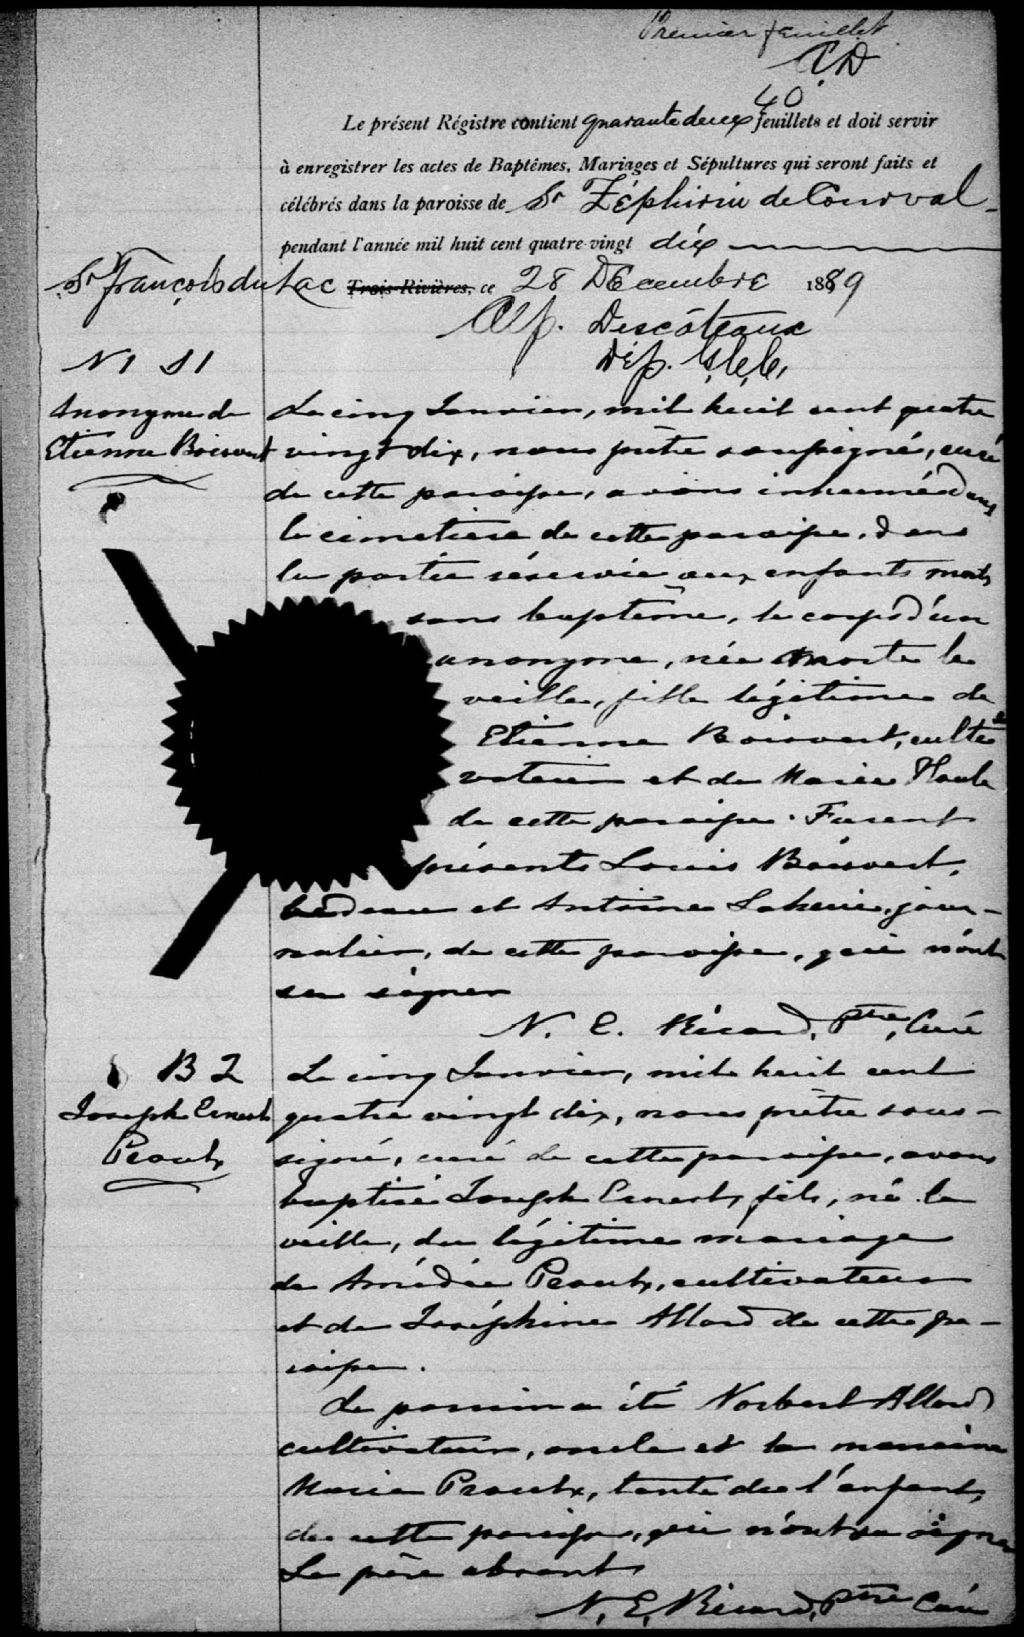 Premier feuillet
40
Le présent Régistre contient quarante deux feuillets et doit servir
à enregistrer les actes de Baptêmes, Mariages et Sépultures qui seront faits et
célébrés dans la paroisse de St Zéphirin de Courval
pendant l'année mil huit cent quatre-vingt dix
St François du Lac Trois-Rivières, ce 28 Décembre 1889
Alf. Descôteaux
Dép.
N1 S1
Anonyme de
Etienne Boisvert
Le cinq Janvier, mil huit cent quatre
vingt dix, nous prêtre soussigné, curé
de cette paroisse, avons inhumé dans
le cimetière de cette paroisse, dans
la partie réservée aux enfants morts
sans baptême, le corps d'un
anonyme, née morte la
veille, fille légitime de
Etienne Boisvert, culti
vateur et de Marie Houle
de cette paroisse. Furent
présents Louis Boisvert,
bedeau et Antoine jour-
nalier, de cette paroisse, qui n'ont
su signer
N. E. Ricard, Ptre, Curé
B2
Joseph Ernest
Proulx
Le cinq Janvier, mil huit cent
quatre vingt dix, nous prêtre sous-
signé, curé de cette paroisse, avons
baptisé Joseph Ernest, fils, né la
veille, du légitime mariage
de Amédée Proulx, cultivateur
et de Joséphine Allard de cette pa-
roisse.
Le parrain a été Norbert Allard
cultivateur, oncle et la marraine
Marie Proulx, tante de l'enfant,
de cette paroisse, qui n'ont su signer
Le père absent
N. E. Ricard, Ptre Curé